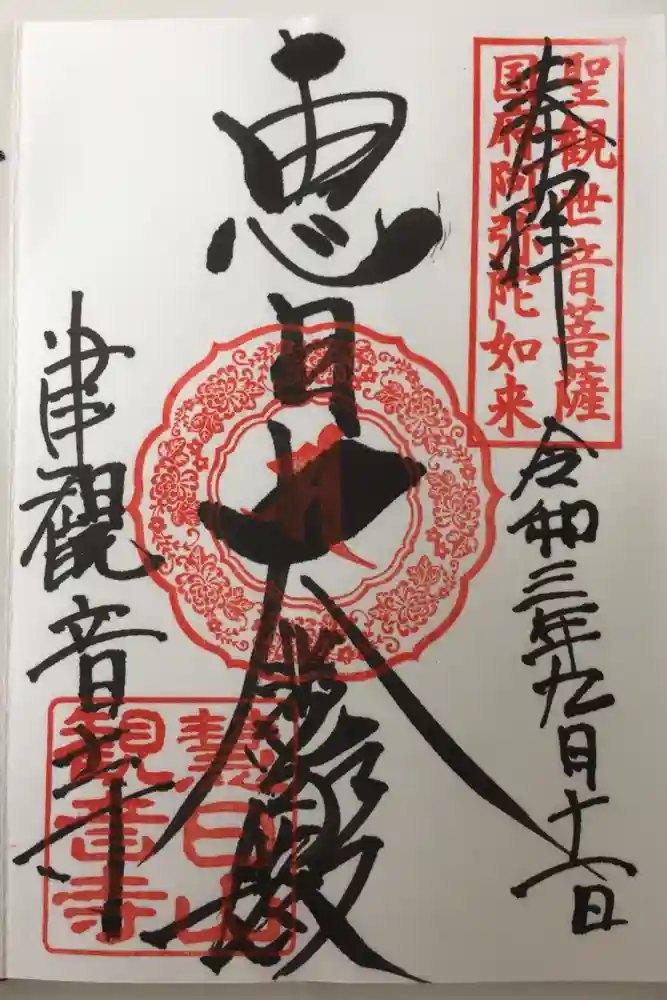 奉拝
聖観世音菩薩
国府阿弥陀如来
令和三年九月十一日
恵日大殿
津観音寺
慧日山
観音寺